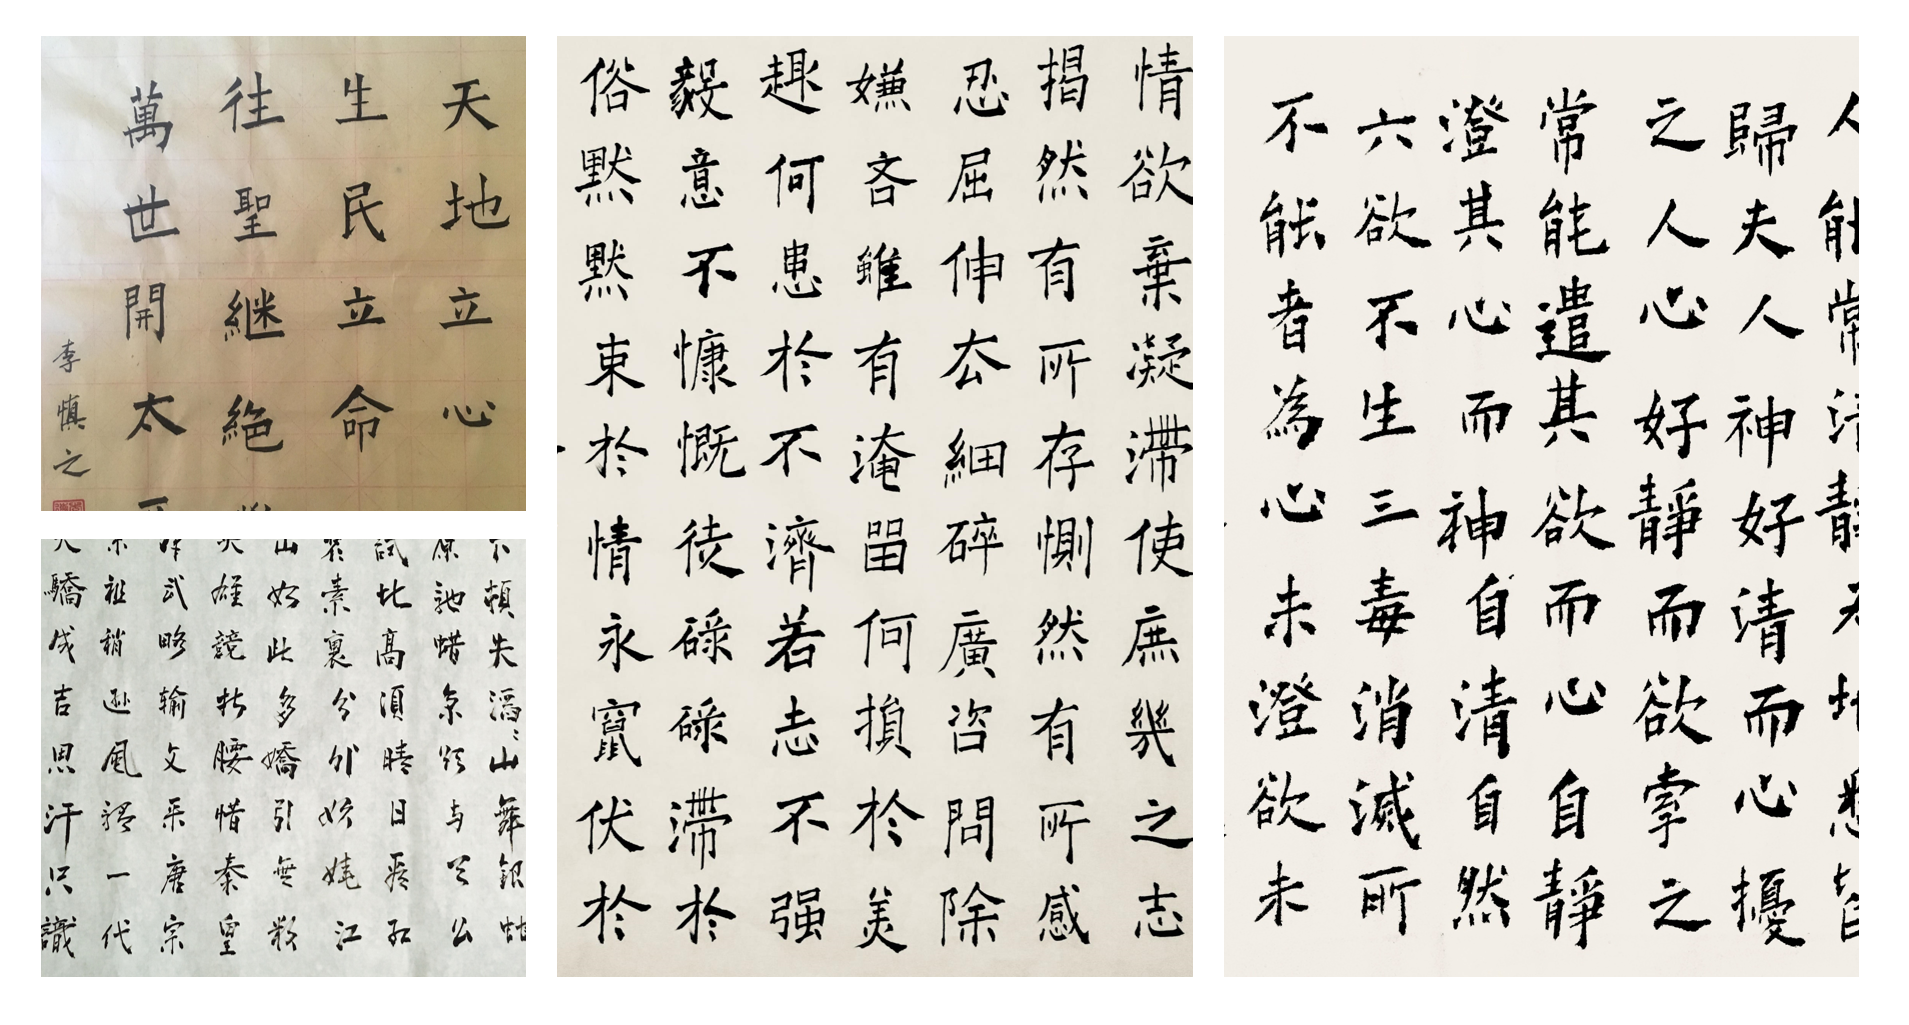 天地立心
生民立命
往聖継絶
萬世開太
李慎之
不頓失滔〻山舞銀蛇
原馳蜡象欲与天公
試比高須晴日看紅
裝素裹分外妖娆江
山如此多嬌引無数
英雄競折腰惜秦皇
武略输文采唐宗
宋祖稍逊風騷一代
天驕成吉思汗只識
情欲棄凝滯使庶幾之志
揭然有所存惻然有所感
忍屈伸厺細碎廣咨問除
嫌吝雖有淹畱何損於美
趣何患於不濟若志不强
毅意不慷慨徒碌碌滯於
俗黙黙束於情永竄伏於
人能常清靜天地悉皆
歸夫人神好清而心擾
之人心好靜而欲牽之
常能遣其欲而心自靜
澄其心而神自清自然
六欲不生三毒消滅所
不能者為心未澄欲未